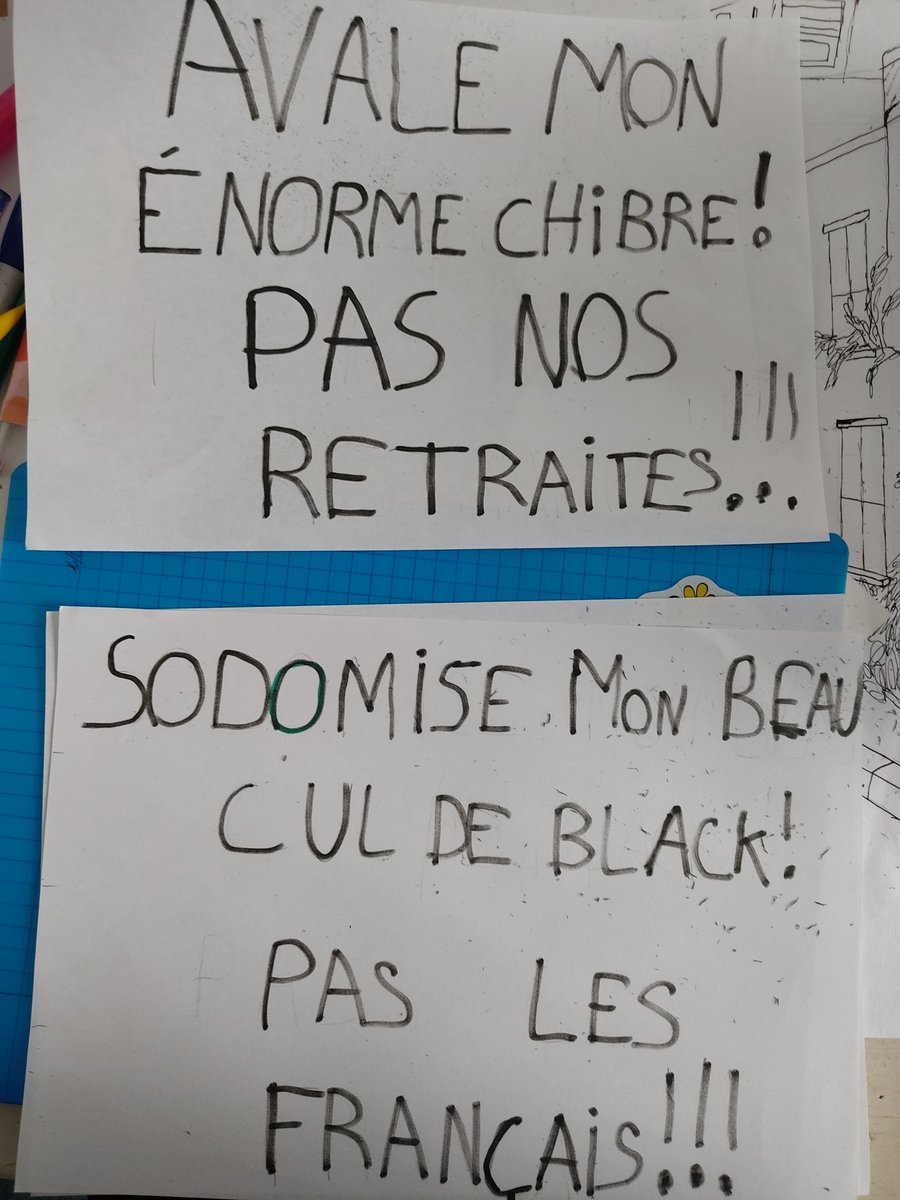 AVALE MON
ÉNORME CHiBRE!
PAS NOS
RETRAiTES!!!
SODOMiSE MON BEAU
CUL DE BLACK!
PAS LES
FRANÇAiS!!!